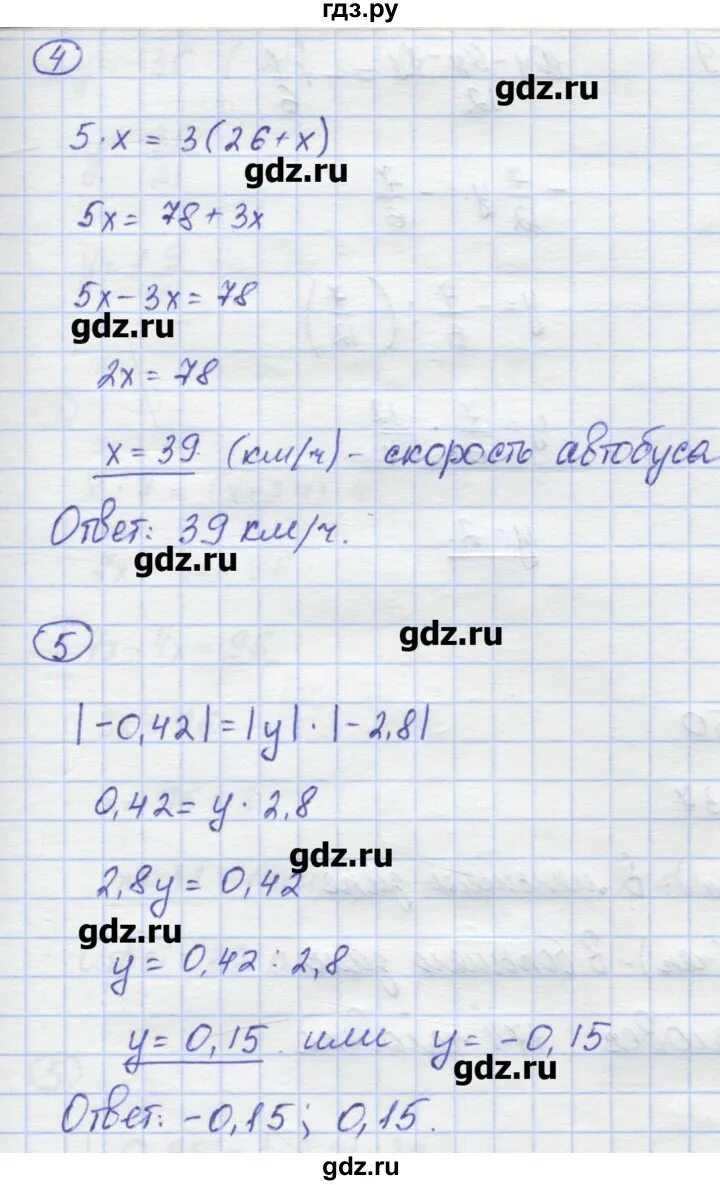 гдз.ру
4
gdz.ru
5·x = 3(26+x)
gdz.ru
5x = 78 + 3x
5x - 3x = 78
gdz.ru
2x = 78
x = 39 (км/ч) - скорость автобуса
Ответ: 39 км/ч.
gdz.ru
5
gdz.ru
|-0,42| = |y|·|-2,8|
0,42 = y·2,8
gdz.ru
2,8y = 0,42
gdz.ru
y = 0,42 : 2,8
y = 0,15 или y = -0,15
gdz.ru
Ответ: -0,15; 0,15.
gdz.ru